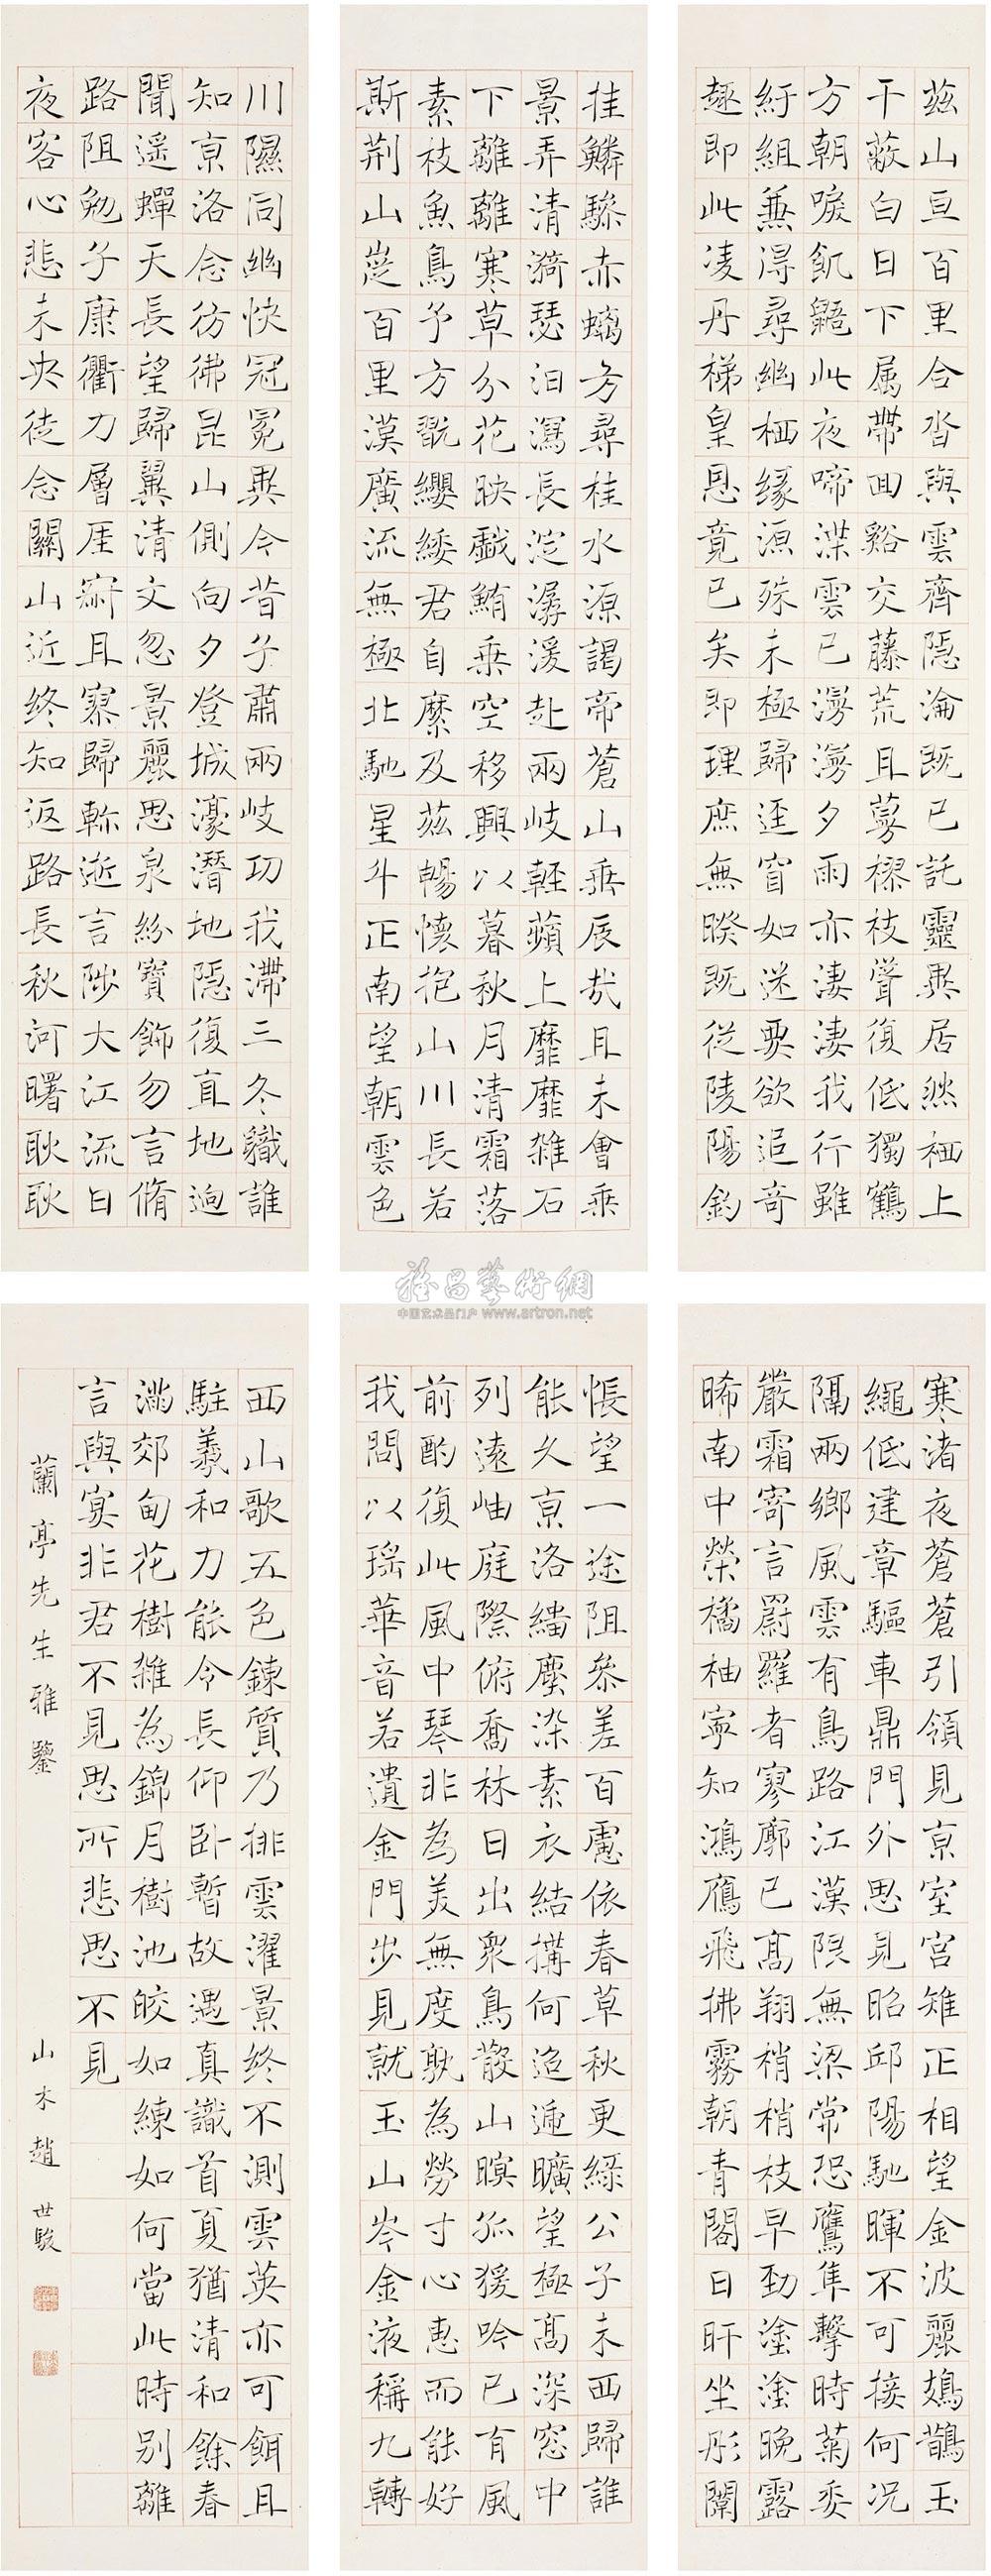 茲山亘百里合沓與雲齊隱淪既已託靈異居然栖上
干蔽白日下属帶回谿交藤荒且蔓樛枝聳復低獨鶴
方朝唳飢鼯此夜啼渫雲已漫漫夕雨亦淒淒我行雖
紆組兼得尋幽栖緣源殊未極歸逕窅如迷要欲追奇
趣即此凌丹梯皇恩竟已矣即理庶無睽既從陵陽釣
挂鱗驂赤螭方尋桂水源謁帝蒼山垂辰哉且未會乘
景弄清漪瑟汩瀉長淀潺湲赴兩岐輕蘋上靡靡雜石
下離離寒草分花映戲鮪乘空移興以暮秋月清霜落
素枝魚鳥予方翫纓緌君自縻及茲暢懷抱山川長若
斯荆山嵸百里漢廣流無極北馳星斗正南望朝雲色
川隰同幽快冠冕異今昔子肅兩岐功我滯三冬職誰
知京洛念彷彿昆山側向夕登城濠潛地隱復直地逈
聞遥蟬天長望歸翼清文忽景麗思泉紛寶飾勿言脩
路阻勉子康衢力層厓寂且寥歸軫逝言陟大江流日
夜客心悲未央徒念關山近終知返路長秋河曙耿耿
寒渚夜蒼蒼引領見京室宮雉正相望金波麗鳷鵲玉
繩低建章驅車鼎門外思見昭邱陽馳暉不可接何況
隔兩鄉風雲有鳥路江漢限無梁常恐鷹隼擊時菊委
嚴霜寄言罻羅者寥廓已高翔梢梢枝早勁塗塗晚露
晞南中榮橘柚寧知鴻鴈飛拂霧朝青閣日旰坐彤闈
悵望一途阻參差百慮依春草秋更綠公子未西歸誰
能久京洛緇塵染素衣結搆何迢遰曠望極高深窓中
列遠岫庭際俯喬林日出衆鳥散山暝孤猨吟已有風
前酌復此風中琴非為美無度孰為勞寸心惠而能好
我問以瑤華音若遺金門步見就玉山岑金液稱九轉
西山歌五色鍊質乃排雲濯景終不測雲英亦可餌且
駐羲和力能令長仰卧暫故遇真識首夏猶清和餘春
滿郊甸花樹雜為錦月樹池皎如練如何當此時別離
言與宴非君不見思所悲思不見
蘭亭先生雅鑒 山木趙世駿
雅昌藝術網
中国艺术品门户 www.artron.net